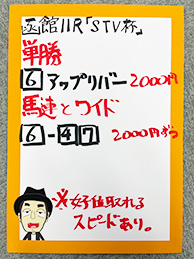 函館11R「STV杯」
単勝
6 アップリバー 2000円
馬連とワイド
6-47 2000円ずつ
※好位取れる
スピードあり。